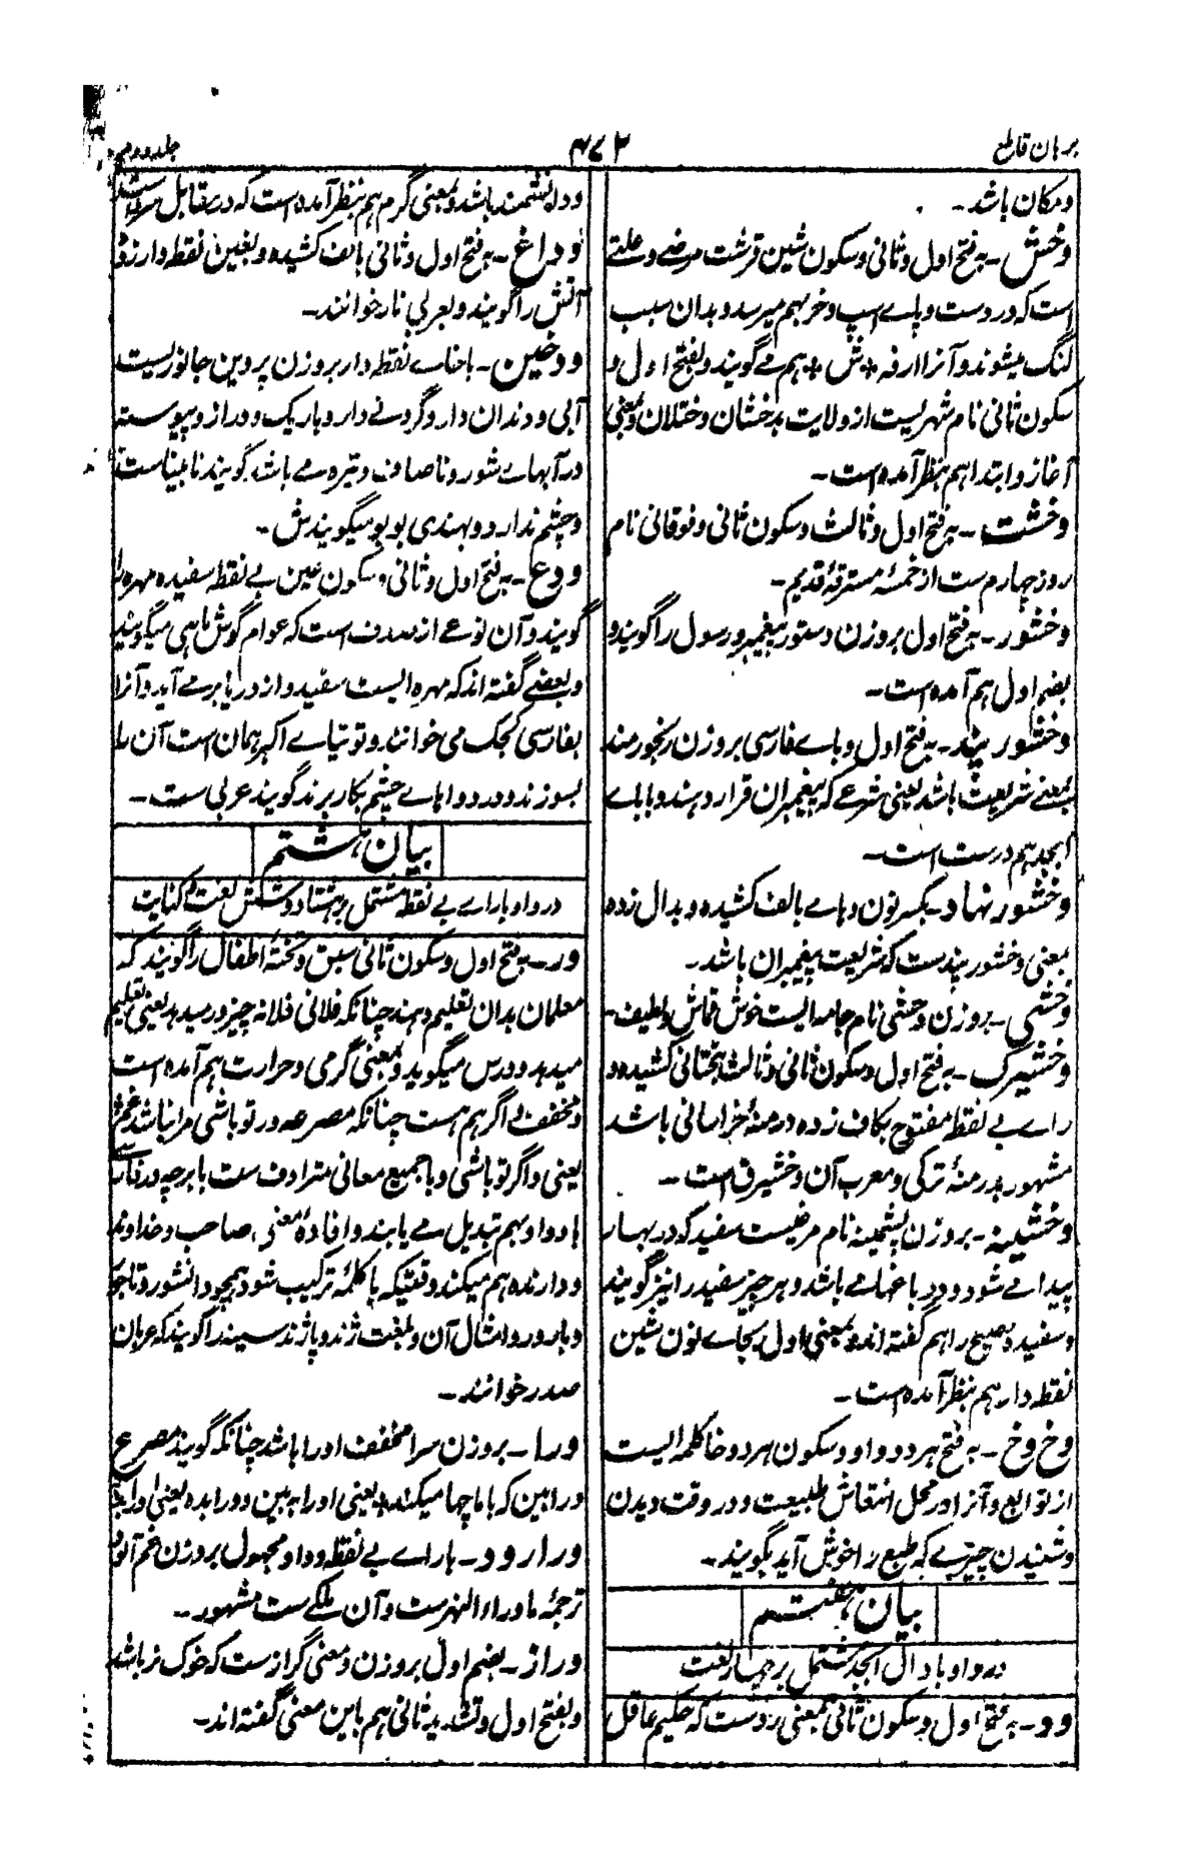 برهان قاطع
۴۷۲
جلد دوم
و مکان باشد۔
وخش۔ به فتح اول و ثانی و سکون شین قرشت مرضے و علتے
است که در دست و پاے اسپ و خر بهم میرسد و بدان سبب
لنگ میشوند و آنرا ارفه وش هم مے گویند و بفتح اول و
سکون ثانی نام شهریست از ولایت بدخشان و ختلان و بمعنی
آغاز و ابتدا هم بنظر آمده است۔
وخشت۔ به فتح اول و ثالث و سکون ثانی و فوقانی نام
روز چهارم ست از خمسهٔ مسترقهٔ قدیم۔
وخشور۔ به فتح اول بروزن دستور پیغمبر و رسول را گویند و
بضم اول هم آمده است۔
وخشور پند۔ به فتح اول و باے فارسی بروزن رنجور مند
بمعنے شریعت باشد یعنی شرعے که پیغمبران قرار دهند و با باے
ابجد هم درست است۔
وخشور نهاد۔ بکسر نون و هاے بالف کشیده و بدال زده
بمعنی وخشور پند ست که شریعت پیغمبران باشد۔
وخشی۔ بروزن وحشی نام جامه ایست خوش قماش و لطیف۔
وخشیرک۔ به فتح اول و سکون ثانی و ثالث بتحتانی کشیده و
راے بے نقطه مفتوح بکاف زده درمنهٔ خراسانی باشد
مشهور بدرمنهٔ ترکی و معرب آن وخشیرق است۔
وخشینه۔ بروزن پشمینه نام مرغیست سفید که در بهار
پیدا مے شود و در باغها مے باشد و هر چیز سفید را نیز گویند
و سفیدهٔ صبح را هم گفته اند و بمعنی اول بجاے نون شین
نقطه دار هم بنظر آمده است۔
وخ وخ۔ به فتح هر دو واو و سکون هر دو خا کلمه ایست
از توابع و آنرا در محل انتعاش طبیعت و در وقت دیدن
و شنیدن چیزے که طبع را خوش آید بگویند۔
بیان هفتم
در واو با دال ابجد مشتمل بر چهار لغت
ود۔ به فتح اول و سکون ثانی بمعنی ردست که حکیم عاقل
و دانشمند باشد و بمعنی گرم هم بنظر آمده است که در مقابل سرد است
وداغ۔ به فتح اول و ثانی بالف کشیده و بغین نقطه دار زده
آتش را گویند و بعربی نار خوانند۔
ودخین۔ با خاے نقطه دار بروزن پروین جانوریست
آبی و دندان دار و گردنے دارد باریک و دراز و پیوسته
در آبهاے شور و ناصاف و تیره مے باشد گویند نابیناست
و چشم ندارد و بهندی بوبو میگویندش۔
ودع۔ به فتح اول و ثانی و سکون عین بے نقطه سفیده مهره را
گویند و آن نوعے از صدف است که عوام گوش ماهی میگویند
و بعضے گفته اند که مهره ایست سفید و از دریا برمے آید و آنرا
بفارسی کجک می خوانند و توتیاے اکبر همان است آن را
بسوزند و در دواهاے چشم بکار برند گویند عربی ست۔
بیان هشتم
در واو با راے بے نقطه مشتمل بر هشتاد و شش لغت و کنایت
ور۔ به فتح اول و سکون ثانی سبق و تختهٔ اطفال را گویند که
معلمان بدان تعلیم دهند چنانکه فلانی فلانه چیز ور میدهد یعنی تعلیم
میدهد و درس میگوید و بمعنی گرمی و حرارت هم آمده است
و مخفف و اگر هم هست چنانکه مصرعه ور تو باشی مرا نباشد غم
یعنی و اگر تو باشی و با جمیع معانی مترادف ست با بر چه در فارسی
با و واو بهم تبدیل مے یابند و افادهٔ معنی صاحب و خداوند
و دارنده هم میکند وقتیکه با کلمهٔ ترکیب شود همچو دانشور و تاجور
و بارور و امثال آن و بلغت ژند و پاژند سینه را گویند که عربان
صدر خوانند۔
ورا۔ بروزن سرا مخفف او را باشد چنانکه گویند مصرع
ورا بین که با ما چها میکند یعنی او را به بین و ورا بده یعنی او را بده
ورارود۔ با راے بے نقطه و واو مجهول بروزن غم آلود
ترجمهٔ ماوراء النهرست و آن ملکے ست مشهور۔
وراز۔ بضم اول بروزن و معنی گرازست که خوک نر باشد
و بفتح اول و تشدید ثانی هم باین معنی گفته اند۔